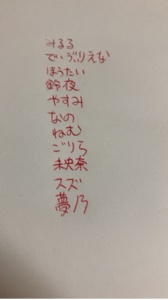 みるる
でぃゔりえな
ほうたい
鈴夜
やすみ
なの
ねむ
ごりら
未央奈
スズ
夢乃